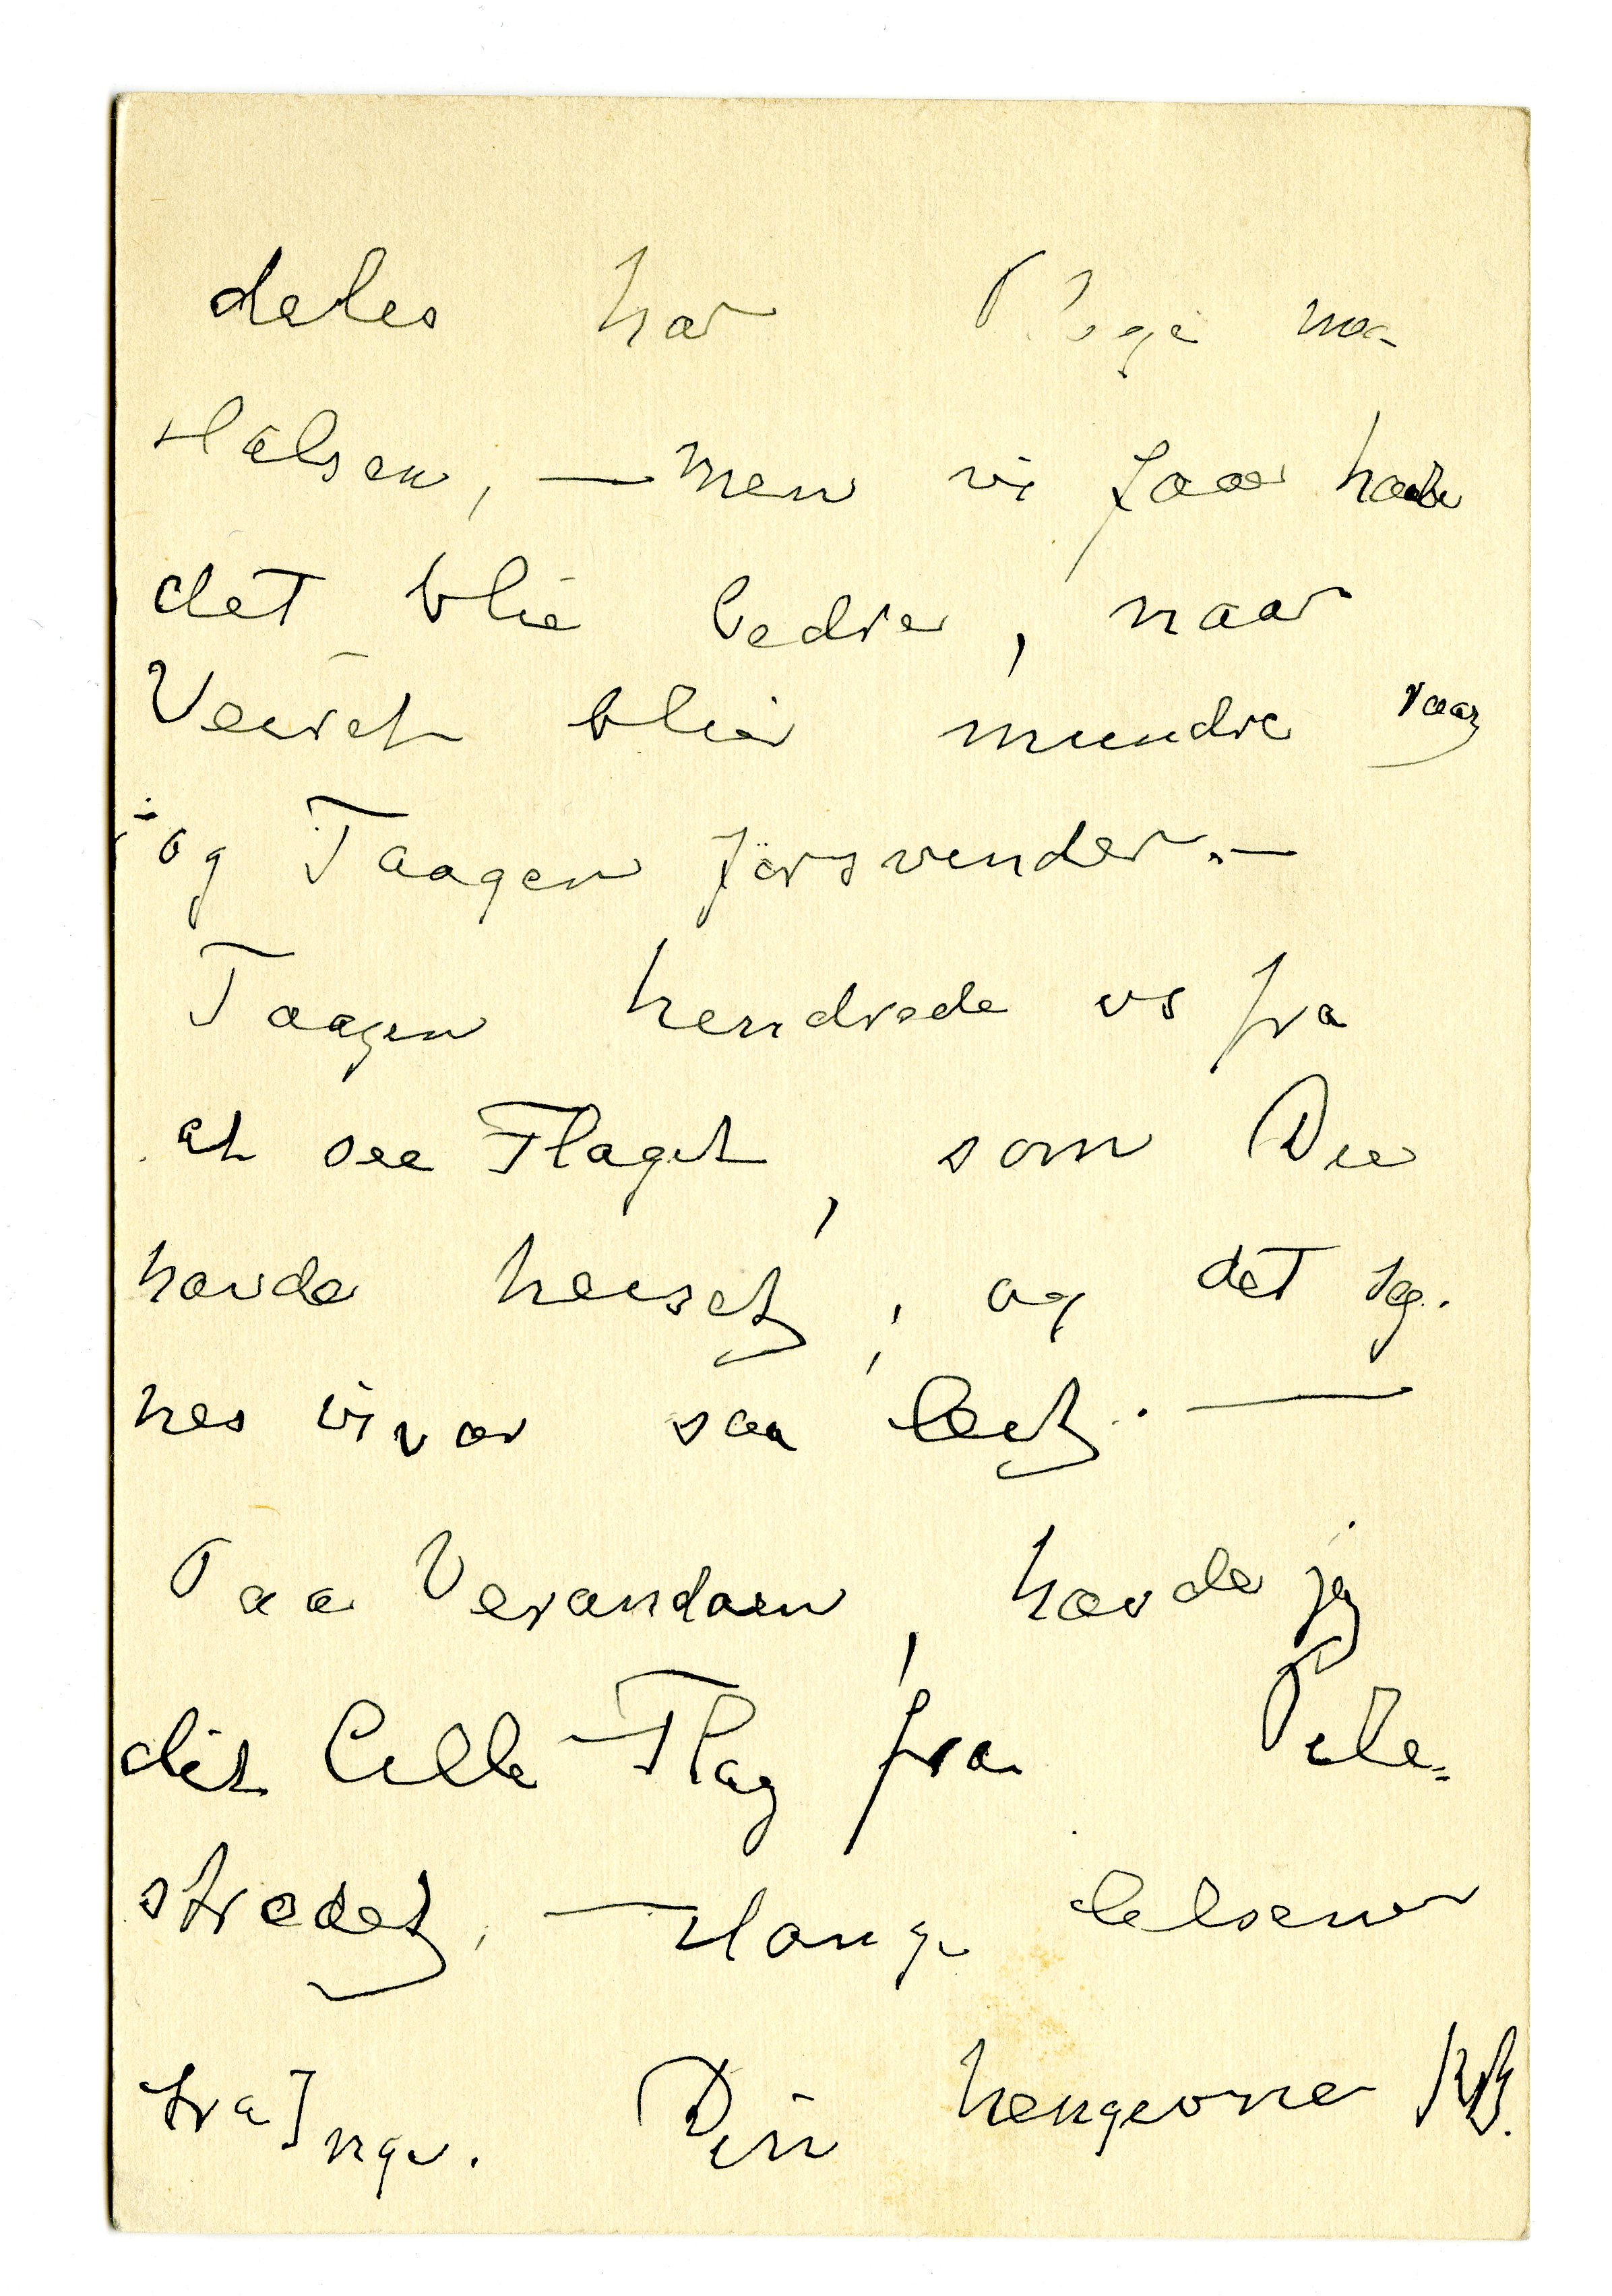 deles har Plage me
Halsen, — men vi faar haabe
det blir bedre, naar
Veiret blir mindre raat
og Taagen forsvinder. —
Taagen hendrede os fra
at see Flaget, som Du
havde heiset, og det sy-
nes vi var saa leit. —
Paa Verandaen, havde jeg
dit lille Flag fra Pile-
strædet, — Mange Hilsener
fra Inga. Din hengivne